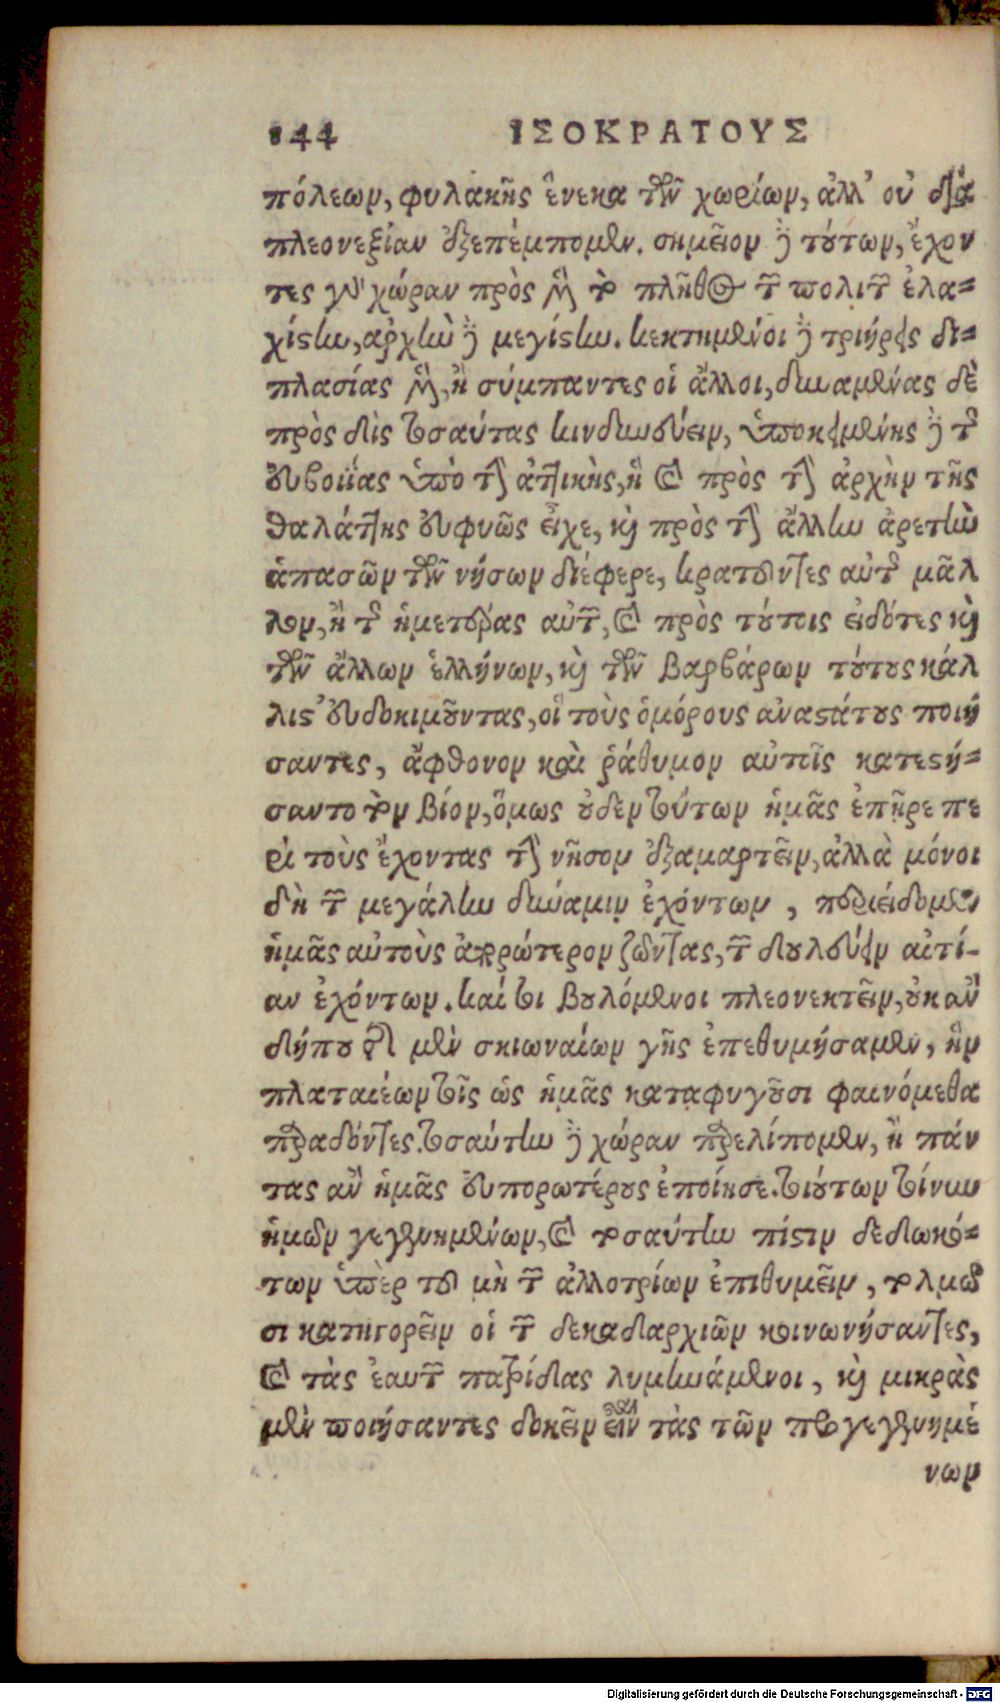 144 ΙΣΟΚΡΑΤΟΥΣ
πόλεων, φυλακῆς ἕνεκα τῶν χωρίων, ἀλλ' οὐ διὰ
πλεονεξίαν ἐξεπέμπομεν. σημεῖον δὲ τούτων, ἔχον
τες γὰρ χώραν πρὸς μὲν τὸ πλῆθος τῶν πολιτῶν ἐλα-
χίστην, ἀρχὴν δὲ μεγίστην. κεκτημένοι δὲ τριήρεις δι-
πλασίας μὲν, ἢ σύμπαντες οἱ ἄλλοι, δυναμένας δὲ
πρὸς δὶς τοσαύτας κινδυνεύειν, ὑποκειμένης δὲ τῆς
εὐβοίας ὑπὸ τὴν ἀττικὴς, ἣ καὶ πρὸς τὴν ἀρχὴν τῆς
θαλάττης εὐφυῶς εἶχε, καὶ πρὸς τὴν ἄλλην ἀρετὴν
ἁπασῶν τῶν νήσων διέφερε, κρατοῦντες αὐτῆς μᾶλ
λον, ἢ τῆς ἡμετέρας αὐτῶν, καὶ πρὸς τούτοις εἰδότες καὶ
τῶν ἄλλων ἑλλήνων, καὶ τῶν βαρβάρων τούτους κάλ
λιστ' εὐδοκιμοῦντας, οἳ τοὺς ὁμόρους ἀναστάτους ποιή
σαντες, ἄφθονον καὶ ῥάθυμον αὐτοῖς κατεστή-
σαντο τὸν βίον, ὅμως οὐδὲν τούτων ἡμᾶς ἐπῆρε πε
ρὶ τοὺς ἔχοντας τὴν νῆσον ἐξαμαρτεῖν, ἀλλὰ μόνοι
δὴ τῶν μεγάλην δύναμιν ἐχόντων, περιείδομεν
ἡμᾶς αὐτοὺς ἀπορώτερον ζῶντας, τῶν δουλεύειν αἰτί-
αν ἐχόντων. καί τοι βουλόμενοι πλεονεκτεῖν, οὐκ ἂν
δήπου τῆς μὲν σκιωναίων γῆς ἐπεθυμήσαμεν, ἣν
πλαταιέων τοῖς ὡς ἡμᾶς καταφυγοῦσι φαινόμεθα
παραδόντες. τοσαύτην δὲ χώραν παρελίπομεν, ἣ πάν
τας ἂν ἡμᾶς εὐπορωτέρους ἐποίησε. τοιούτων τοίνυν
ἡμῶν γεγενημένων, καὶ τοσαύτην πίστιν δεδωκό-
των ὑπὲρ τοῦ μὴ τῶν ἀλλοτρίων ἐπιθυμεῖν, τολμῶ
σι κατηγορεῖν οἱ τῶν δεκαδαρχιῶν κοινωνήσαντες,
καὶ τὰς ἑαυτῶν πατρίδας λυμηνάμενοι, καὶ μικρὰς
μὲν ποιήσαντες δοκεῖν εἶναι τὰς τῶν προγεγενημέ
νων
Digitalisierung gefördert durch die Deutsche Forschungsgemeinschaft - DFG